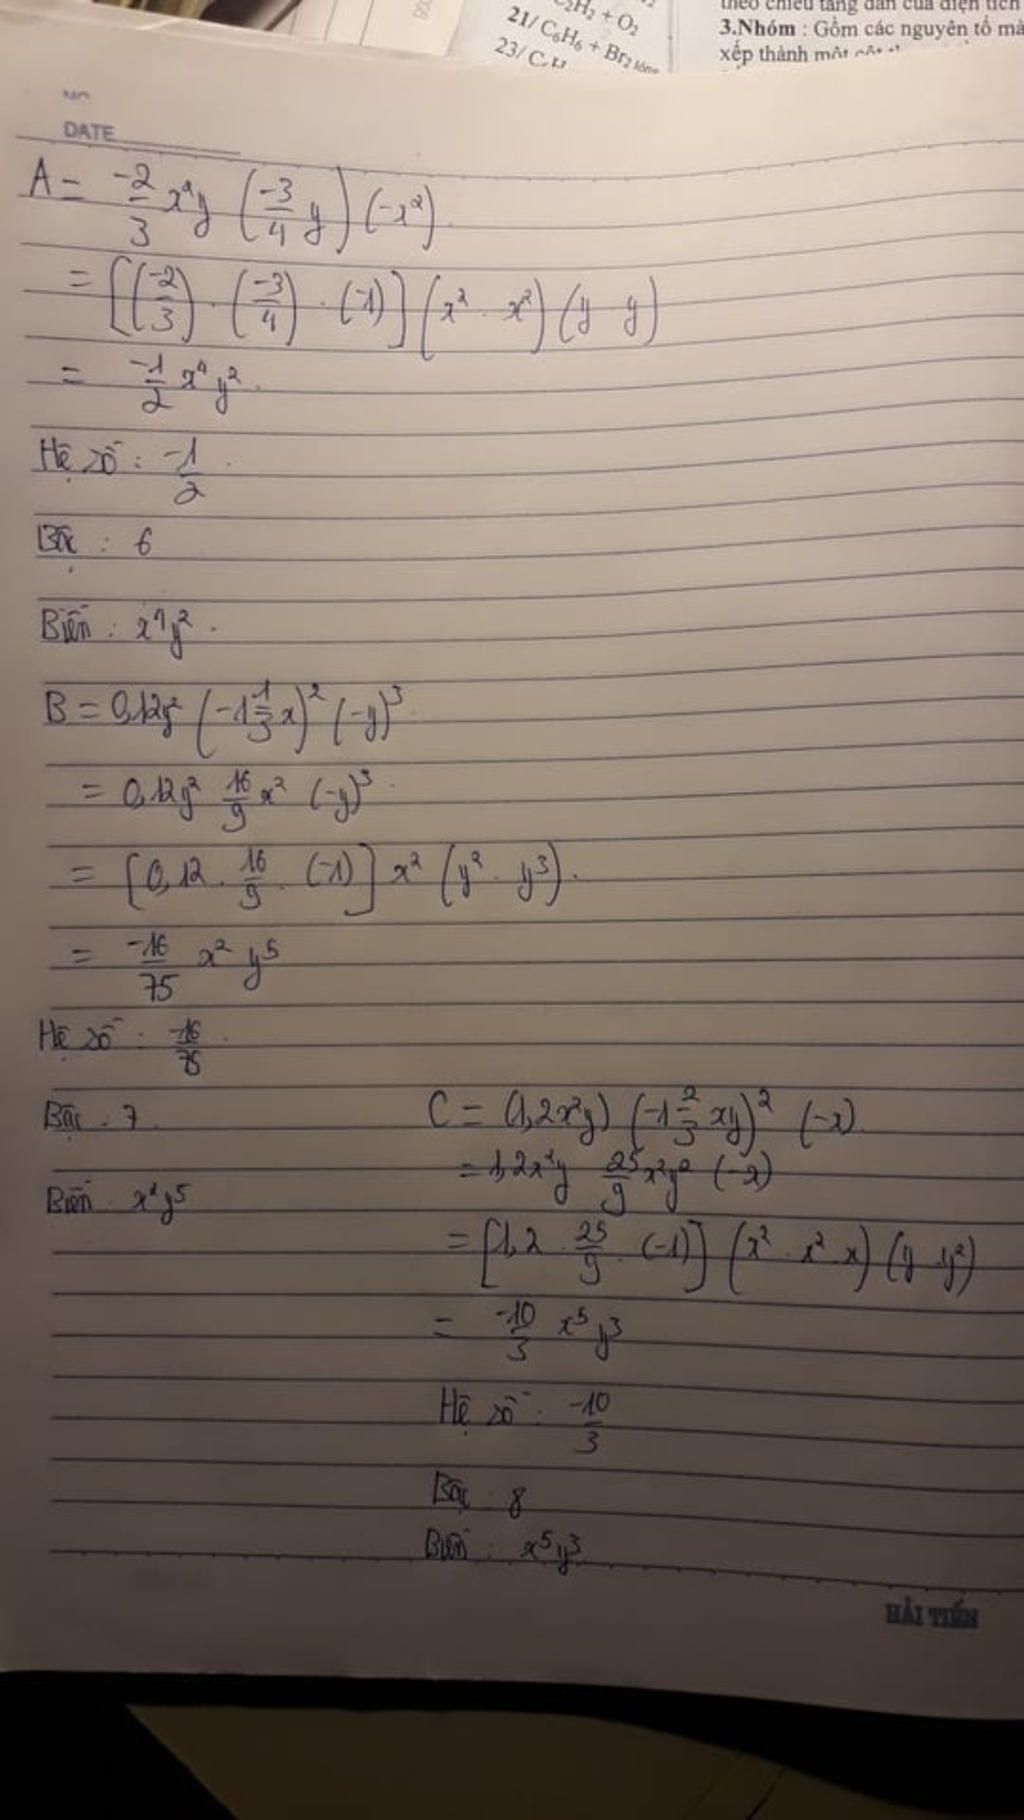 C₂H₂ + O₂
21/ C₆H₆ + Br₂ lỏng
23/
theo chiều tăng dần của điện tích
3.Nhóm : Gồm các nguyên tố mà
xếp thành một cột
DATE
A = -2/3 x²y (-3/4 y) (-x²).
= [(-2/3) . (-3/4) . (-1)] (x² . x²) (y . y)
= -1/2 x⁴ y².
Hệ số : -1/2.
Bậc : 6
Biến : x⁴y².
B = 0,12y² (-1 1/3 x)² (-y)³.
= 0,12y² 16/9 x² (-y)³.
= [0,12 . 16/9 . (-1)] x² (y² . y³).
= -16/75 x² y⁵
Hệ số : -16/75.
Bậc : 7.
Biến : x²y⁵
C = (1,2x²y) (-1 2/3 xy)² (-x).
= 1,2x²y 25/9 x²y² (-x)
= [1,2 . 25/9 . (-1)] (x² . x² . x) (y . y²)
= -10/3 x⁵ y³
Hệ số : -10/3
Bậc : 8
Biến : x⁵y³
HẢI TIẾN